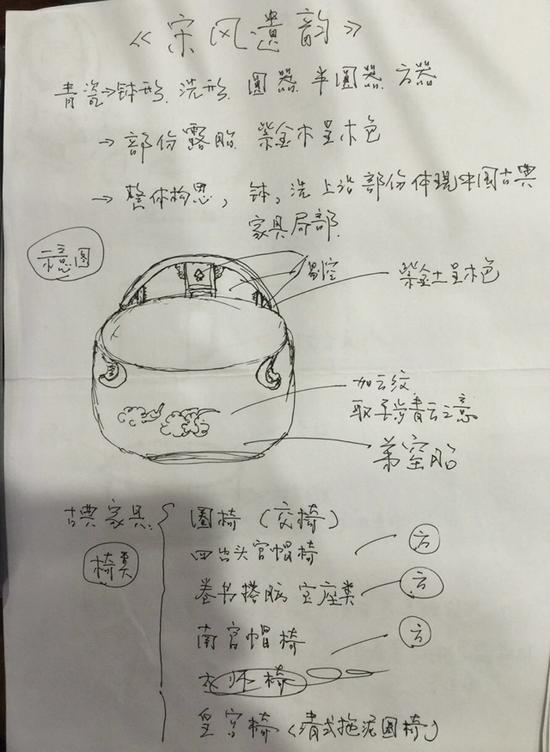 《宋风遗韵》
青瓷→钵形.洗形 圆器 半圆器 方器
→部份露胎 紫金木呈木色
→整体构思，钵，洗上沿部份体现中国古典
家具局部.
示意图
剔空
紫金土呈木色
加云纹
取平步青云之意
弟窑胎
古典家具.
椅类
圈椅（交椅）
四出头官帽椅 方
卷书搭脑 宝座类 方
南官帽椅 方
椅
皇宫椅（清式拖泥圈椅）